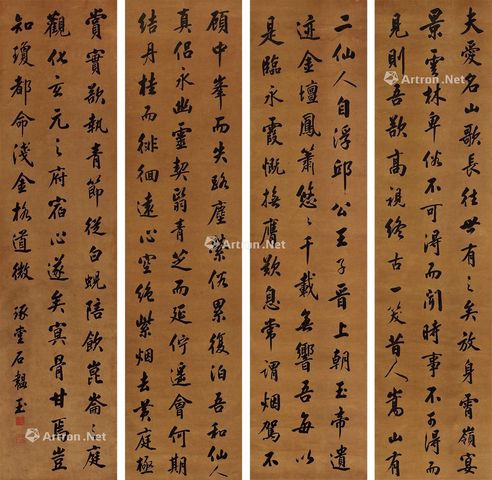 夫愛名山歌長往世有之矣放身霄嶺宴
景雲林卑俗不可得而聞時事不可得而
見則吾欲高視終古一笑昔人嵩山有
二仙人自浮邱公王子晉上朝玉帝遺
迹金壇鳳簫悠〻千載無響吾每以
是臨永霞慨撫膺歎息常謂烟駕不
顧中峯而失路塵縈俗累復泊吾和仙人
真侶永幽靈契翳青芝而延佇還會何期
結丹桂而徘徊遠心空絕紫烟去黃庭極
賞實欲執青節從白蜺陪飲崑崙之庭
觀化玄元之府宿心遂矣冥骨甘焉豈
知瓊都命淺金格道微 琢堂石韞玉
Artron.Net
Artron.Net
Artron.Net
Artron.Net